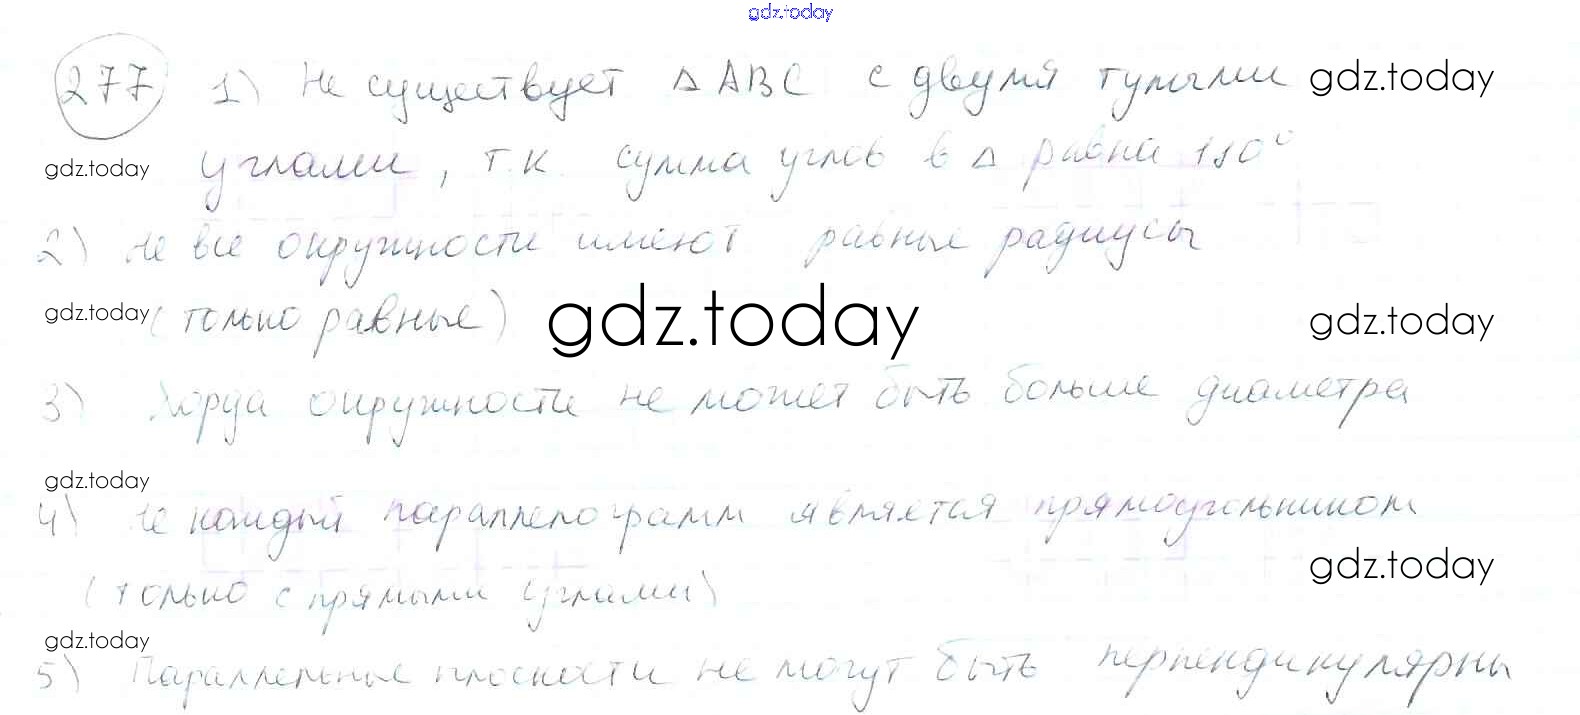 gdz.today
277 1) Не существует Δ ABC с двумя тупыми gdz.today
gdz.today углами, т.к. сумма углов в Δ равна 180°
2) Не все окружности имеют равные радиусы
gdz.today (только равные) gdz.today gdz.today
3) Хорда окружности не может быть больше диаметра
gdz.today
4) Не каждый параллелограмм является прямоугольником
(только с прямыми углами) gdz.today
gdz.today
5) Параллельные плоскости не могут быть перпендикулярны